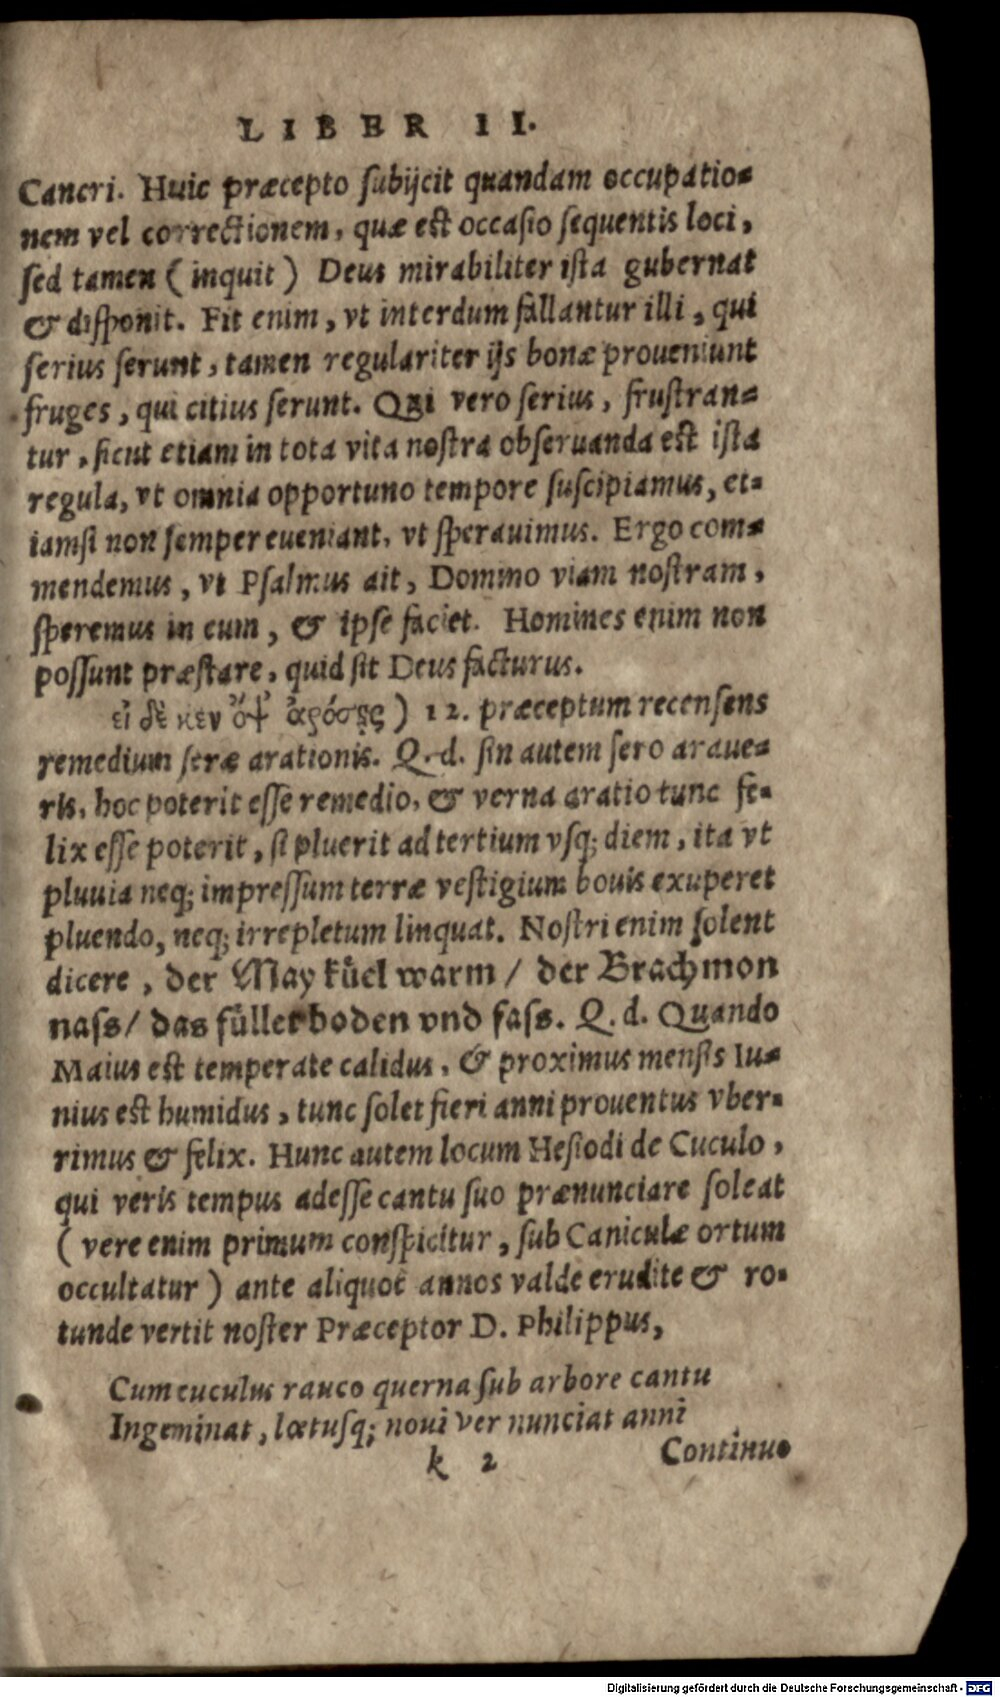 LIBER II.
Cancri. Huic præcepto subijcit quandam occupatio-
nem vel correctionem, quæ est occasio sequentis loci,
sed tamen (inquit) Deus mirabiliter ista gubernat
& disponit. Fit enim, vt interdum fallantur illi, qui
serius serunt, tamen regulariter ijs bonæ proueniunt
fruges, qui citius serunt. Qui vero serius, frustran-
tur, sicut etiam in tota vita nostra obseruanda est ista
regula, vt omnia opportuno tempore suscipiamus, et-
iamsi non semper eueniant, vt sperauimus. Ergo com-
mendemus, vt Psalmus ait, Domino viam nostram,
speremus in eum, & ipse faciet. Homines enim non
possunt præstare, quid sit Deus facturus.
εἰ δέ κεν ὄψ' ἀρόσῃς) 12. præceptum recensens
remedium seræ arationis. Q. d. sin autem sero araue-
ris, hoc poterit esse remedio, & verna aratio tunc fe-
lix esse poterit, si pluerit ad tertium vsq; diem, ita vt
pluuia neq; impressum terræ vestigium bouis exuperet
pluendo, neq; irrepletum linquat. Nostri enim solent
dicere, der May küel warm / der Brachmon
nass / das füllet boden vnd fass. Q. d. Quando
Maius est temperate calidus, & proximus mensis Iu-
nius est humidus, tunc solet fieri anni prouentus vber-
rimus & felix. Hunc autem locum Hesiodi de Cuculo,
qui veris tempus adesse cantu suo prænunciare soleat
(vere enim primum conspicitur, sub Caniculæ ortum
occultatur) ante aliquot annos valde erudite & ro-
tunde vertit noster Præceptor D. Philippus,
Cum cuculus rauco querna sub arbore cantu
Ingeminat, lætusq; noui ver nunciat anni
k 2 Continuo
Digitalisierung gefördert durch die Deutsche Forschungsgemeinschaft - DFG